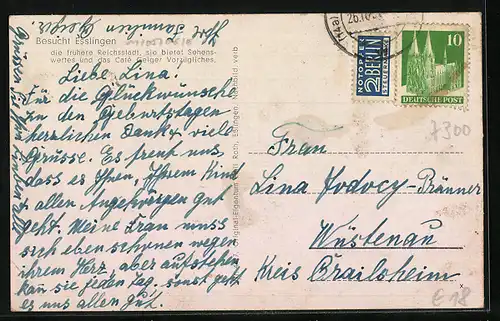 Hort Familien Geiger
Besucht Esslingen
die frühere Reichsstadt, sie bietet Sehens-
wertes und das Café Geiger Vorzügliches.
Liebe Lina!
Für die Glückwünsche
zu den Geburtstagen
herzlichen Dank u. viele
Grüsse. Es freut uns,
dass es Ihnen, Ihrem Kind
u. allen Angehörigen gut
geht. Meine Frau muss
sich eben schonen wegen
ihrem Herz, aber aufstehen
kan sie jeden Tag. sonst geht
es uns allen gut.
Grüssen Sie
alle
26.10.
NOTOPFER
2 BERLIN
STEUERMARKE
10
DEUTSCHE POST
7300
Frau
Lina Jodocy-Pränner
Wüstenau
Kreis Crailsheim
€ 18